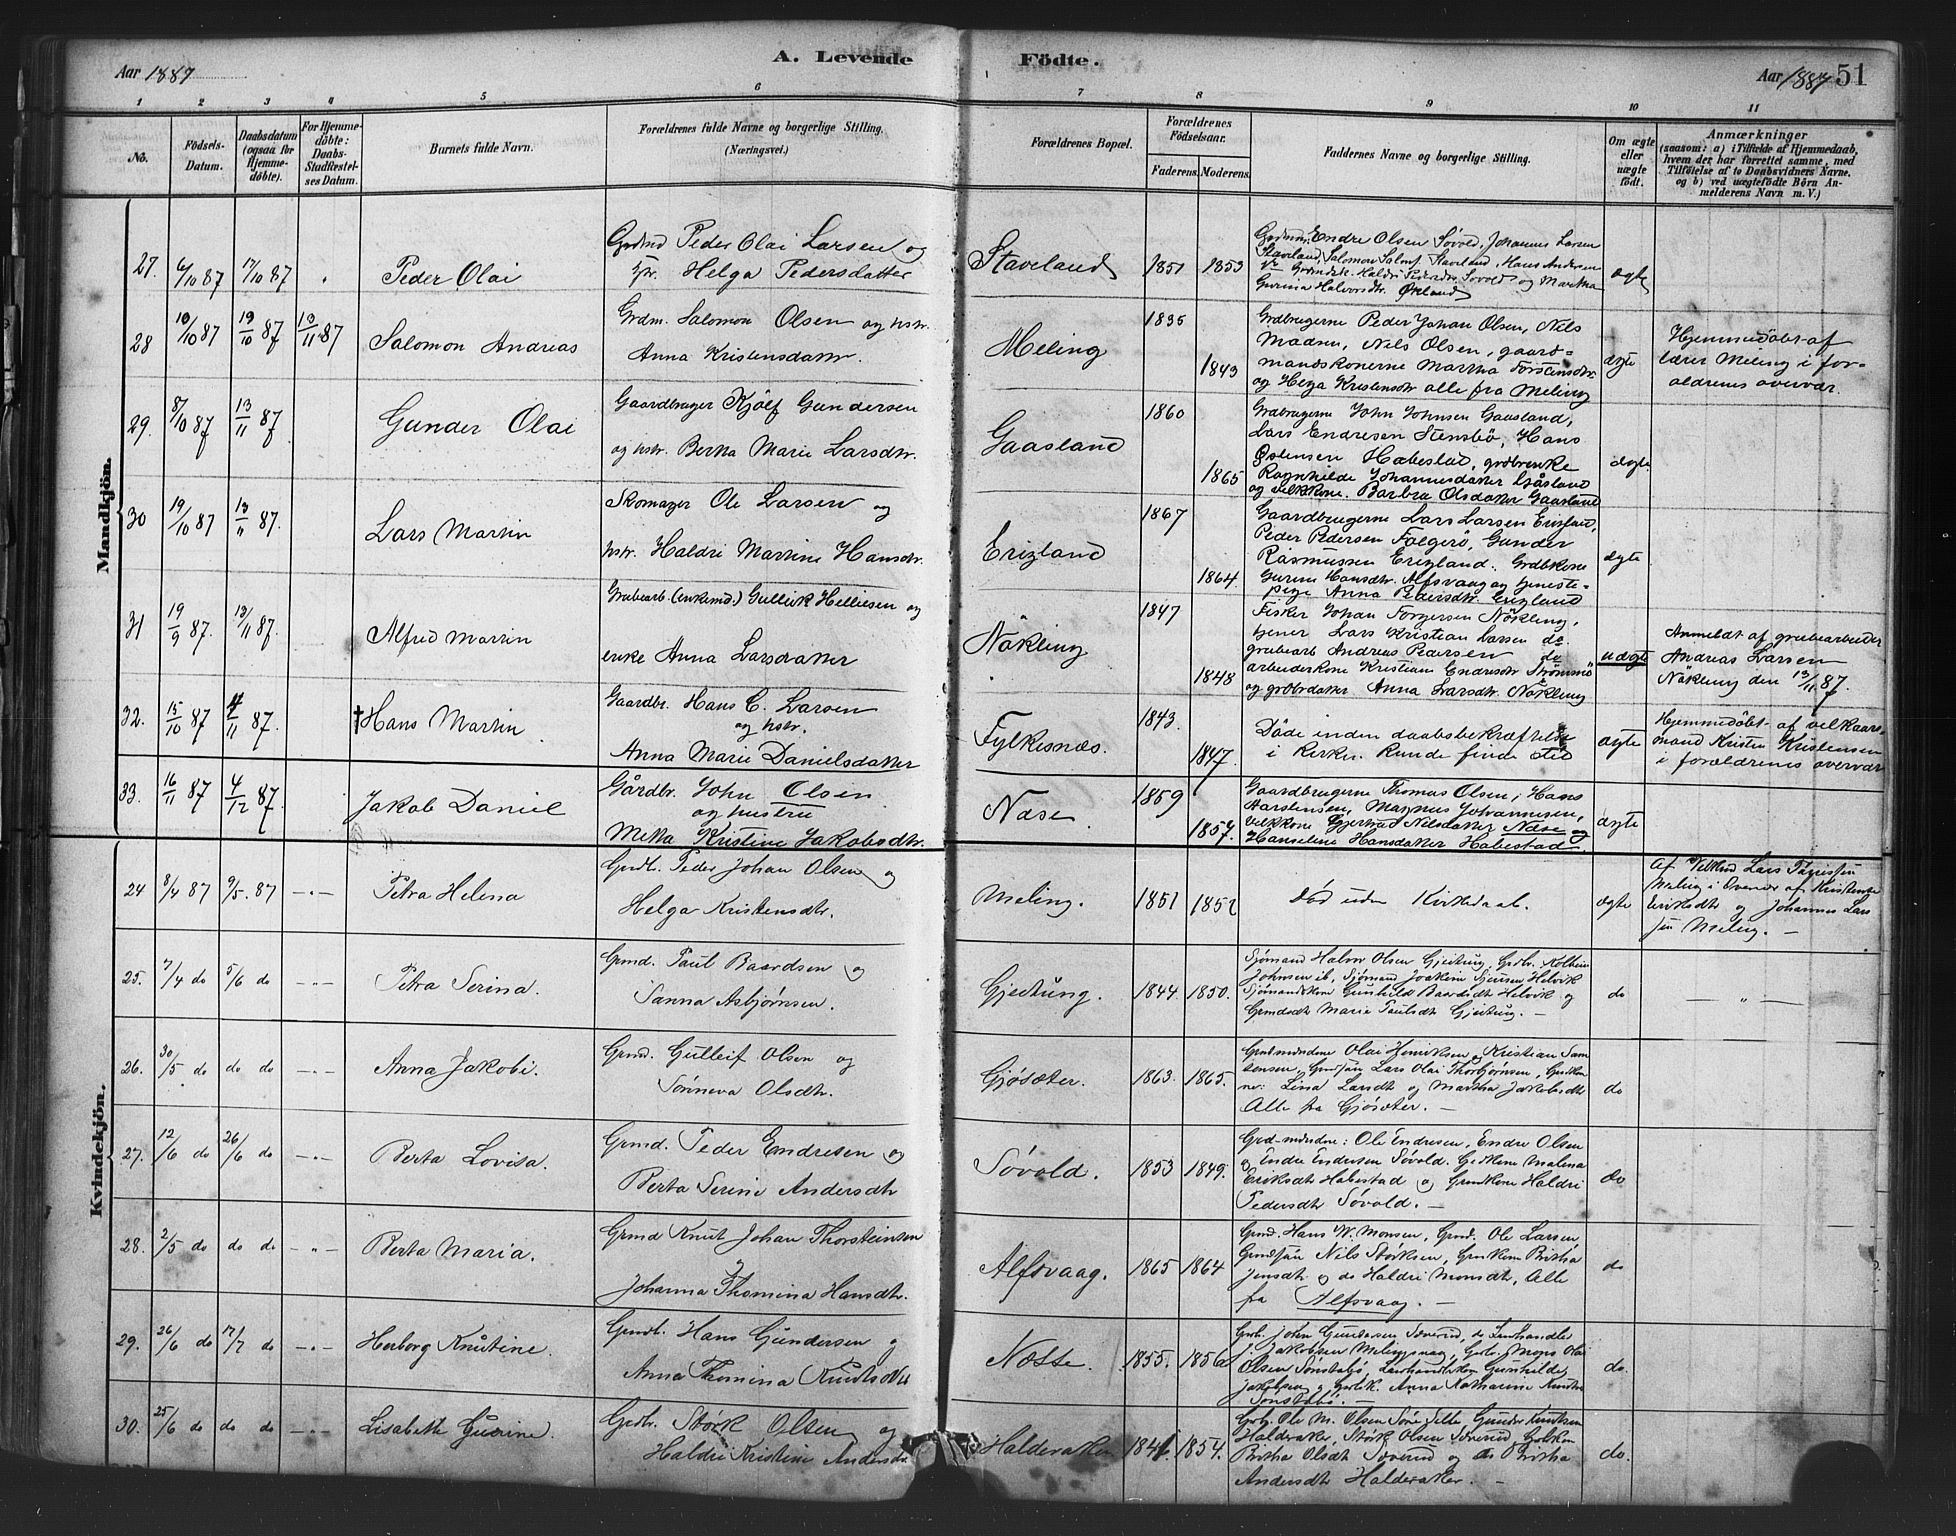 Aar 1887
A. Levende
Födte.
Aar 1887 51
1 2 3 4 5 6 7 8 9 10 11
No.
Födsels-
Datum.
Daabsdatum
(ogsaa for
Hjemme-
döbte).
For Hjemme-
döbte:
Daabs-
Stadfæstel-
ses Datum.
Barnets fulde Navn.
Forældrenes fulde Navne og borgerlige Stilling.
(Næringsvei.)
Forældrenes Bopæl.
Forældrenes
Födselsaar.
Faderens. Moderens.
Faddernes Navne og borgerlige Stilling.
Om ægte
eller
uægte
födt.
Anmærkninger
(saasom: a) i Tilfælde af Hjemmedaab,
hvem der har forrettet samme, med
Tilföielse af to Daabsvidners Navne.
og b) ved uægtefödte Börn An-
melderens Navn m. V.)
Mandkjön.
27. 6/10 87 17/10 87 Peder Olai
Grdmd Peder Olai Larsen og
Helga Pedersdatter
Staveland 1851 1853
Endre Olsen Søvold, Johannes Larsen
Staveland, Salomon Staveland, Hans Andersen
Haldri Søvold og Martha
Gurina Halvorsdtr. Økland
ægte
28 10/10 87 19/10 87 13/11 87 Salomon Andreas
Grdm. Salomon Olsen og hstr.
Anna Kristensdatter.
Meling 1835 1843
Grdbrugerne Peder Johan Olsen, Nils
Madsen, Nils Olsen, gaard-
mandskonerne Martha Torstensdtr
og Helga Kristensdtr alle fra Meling
ægte
Hjemmedöbt af
lærer Meling i for-
ældrenes overvær.
29. 8/10 87 13/11 87 Gunder Olai
Gaardbruger Kjölf Gundersen
og hstr. Berta Marie Larsdtr.
Gaasland 1860 1865
Grdbrugerne John Johnsen Gaasland,
Lars Endresen Stensbö, Hans
Östensen Hæbestad, grdbrenke
Ragnhilde Johannesdatter Gåsland
og Barbra Olsdatter Gaasland
ægte
30 19/10 87 13/11 87. Lars Martin
Skomager Ole Larsen og
hstr. Haldri Martine Hansdtr.
Erigland 1867 1864
Gaardbrugerne Lars Larsen Erigland,
Peder Pedersen Folgerö, Gunder
Rasmussen Erigland. Grdbkone
Gurine Hansdtr. Alfsvaag og tjeneste-
pige Anna Pedersdtr. Erigland
ægte
31 19/9 87. 13/11 87. Alfred Martin
Grubearb. (enkemd.) Gullick Helliesen og
enke Anna Larsdatter
Nökling 1847 1848
Fisker Johan Torgersen Nökling,
tjener Lars Kristian Larsen do
grubearb Andreas Pedersen do
arbeiderkone Kristian Endresdtr Strømmø
og grdbrdatter Anna Larsdtr. Nökling
uægte
Anmeldt af grubearbeider
Andreas Larsen
Nökling den 13/11 87.
32. 15/10 87 4/11 87. † Hans Martin
Gaardbr. Hans C. Larsen
og hstr.
Anna Marie Danielsdatter
Fylkesnæs. 1843. 1847.
Döde inden daabsbekræftelse
i kirken kunde finde sted
ægte
Hjemmedöbt af
mand Kristen Kristensen
i forældrenes overvær
33. 16/11 87 4/12 87. Jakob Daniel
Gårdbr. John Olsen
og hustru
Metta Kristine Jakobsdtr.
Næse. 1859 1857.
Gaardbrugerne Thomas Olsen, Hans
Aarstensen, Magnus Johannesen,
Gjertrud Nilsdatter Næse og
Hanseline Hansdatter Habestad
ægte
Kvindekjön.
24 8/4 87 9/5. 87 Petra Helena
Grdb. Peder Johan Olsen og
Helga Kristensdtr.
Meling. 1851 1852
Död uden Kirkedaab.
ægte
Af Lars
Meling i Overvær af
Eriksdtr og Johannes Lars
Meling. —
25. 7/4 do 5/6 do Petra Serina.
Grmd. Paul Baardsen og
Sanna Asbjørnsen.
Gjeitung. 1844. 1850.
Sjømand Halvor Olsen Gjeitung, Grdbr. Kolbein
Johnsen ib, Sjømand Joakim Helvik
Sjømandskone Gunhild Baardsdtr Helvik og
Marie Paulsdt Gjeitung. —
do — " —
26. 30/5 do do do Anna Jakobi.
Grmd. Gulleif Olsen og
Sönneva Olsdtr.
Gjøsæter. 1863. 1865.
Olai Henriksen, Kristian
Lars Olai Thorbjørnsen,
Lina Larsdt og Martha Jakobsdt
Alle fra Gjøsæter. —
do
27. 12/6 do 26/6 do Berta Lovisa.
Grmd. Peder Endresen og
Berta Serine Andersdtr
Søvold. 1853 1849.
Grd-mændene: Ole Endresen, Endre Olsen
og Endre Endresen Søvold. Malena
Eriksdt Habestad og Haldri
Pedersdt Søvold. —
do
28. 2/5 do do do Berta Maria.
Grmd Knut Johan Thorsteinsen
og
Johanna Thomina Hansdtr.
Alfsvaag. 1865 1864
Grmd. Hans W. Monsen, Grmd. Ole Larsen
Nils Størksen, Britha
Jensdt og do Haldri Monsdt, Alle
fra Alfsvaag. —
do
29. 26/6 do 17/7 do Herborg Knutine.
Grmdb. Hans Gundersen og
Anna Thomina Knudtsdtr
Næsse. 1855. 1856
John Gundersen Sæverud, do
J. Jakobsen Melingsvaag, Mons Olai
Olsen Sønstabø, Gunhilde
Anna Katharine
Sønstabø. —
do.
30. 25/6 do do do Lisabeth Gurine.
Grdbr. Størk Olsen og
Haldri Kristine Andersdtr.
Halderaker 1846 1854.
Grb. Ole M. Olsen Gunder Knutsen
Halderaker, Størk Olsen Sæverud
Britha Olsdt Sæverud og do Britha
Andersdt Halderaker. —
do.